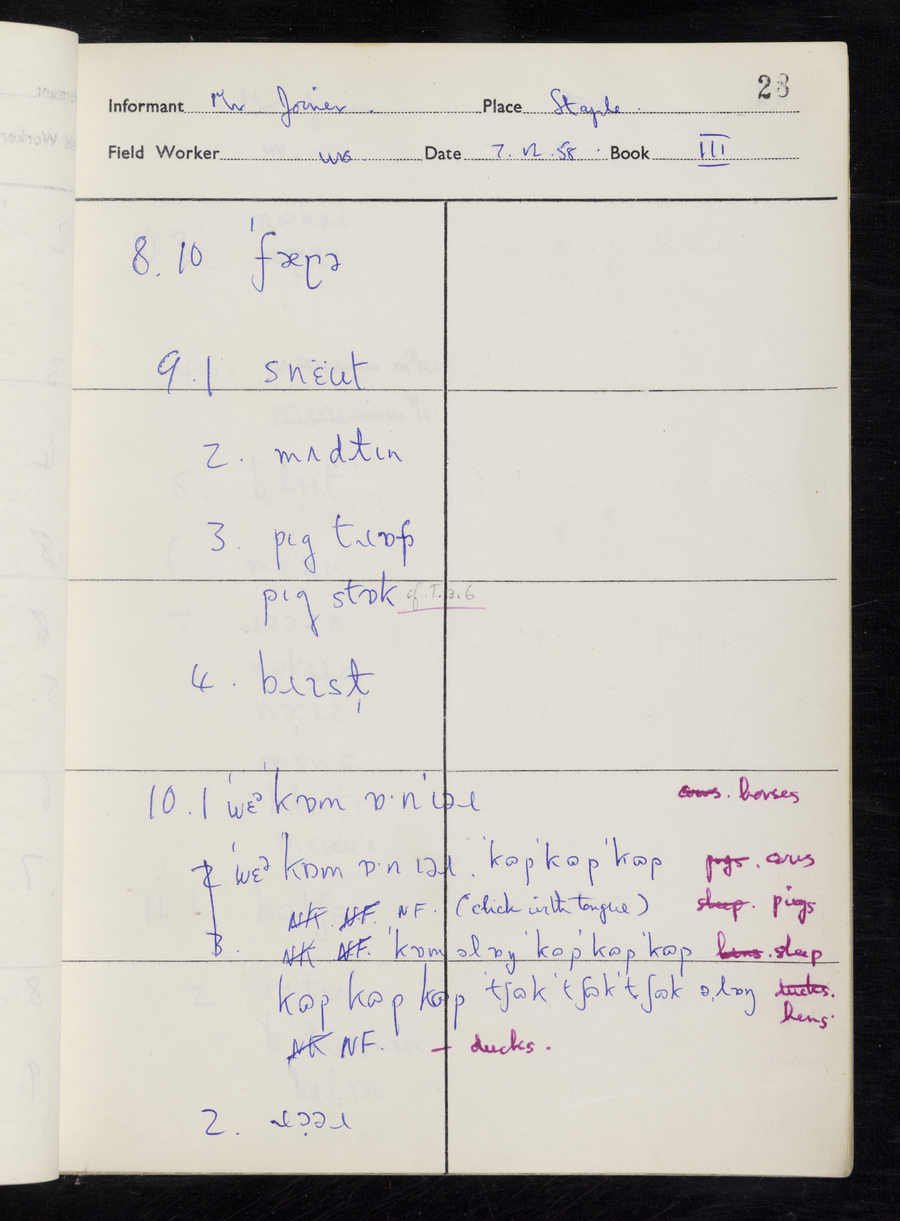 28
Informant Mr Joiner Place Staple
Field Worker Date 7. VI. 58 Book III
8.10 ˈfæɽə
9.1 snɛ̈ut
2. mʌdtɪn
3. pɪg tɹɒf
pɪg stɒk cf. I.3.6
4. bɹɪst
10.1 ˈwɛᵊ ˈkɒm ɒ·n ˈɪəɹ cows. horses
2 ˈwɛᵊ ˈkɒm ɒ·n ɪəɹ. ˈkɒp ˈkɒp ˈkɒp pigs. cows
NK. NF. NF. (click with tongue) sheep. pigs
3. NK NF. ˈkɒm əlɒŋ ˈkɒp ˈkɒp ˈkɒp hens. sheep
kɒp kɒp kɒp ˈtʃɒk ˈtʃɒk ˈtʃɒk əˌlɒŋ ducks.
hens.
NK NF. – ducks.
2.